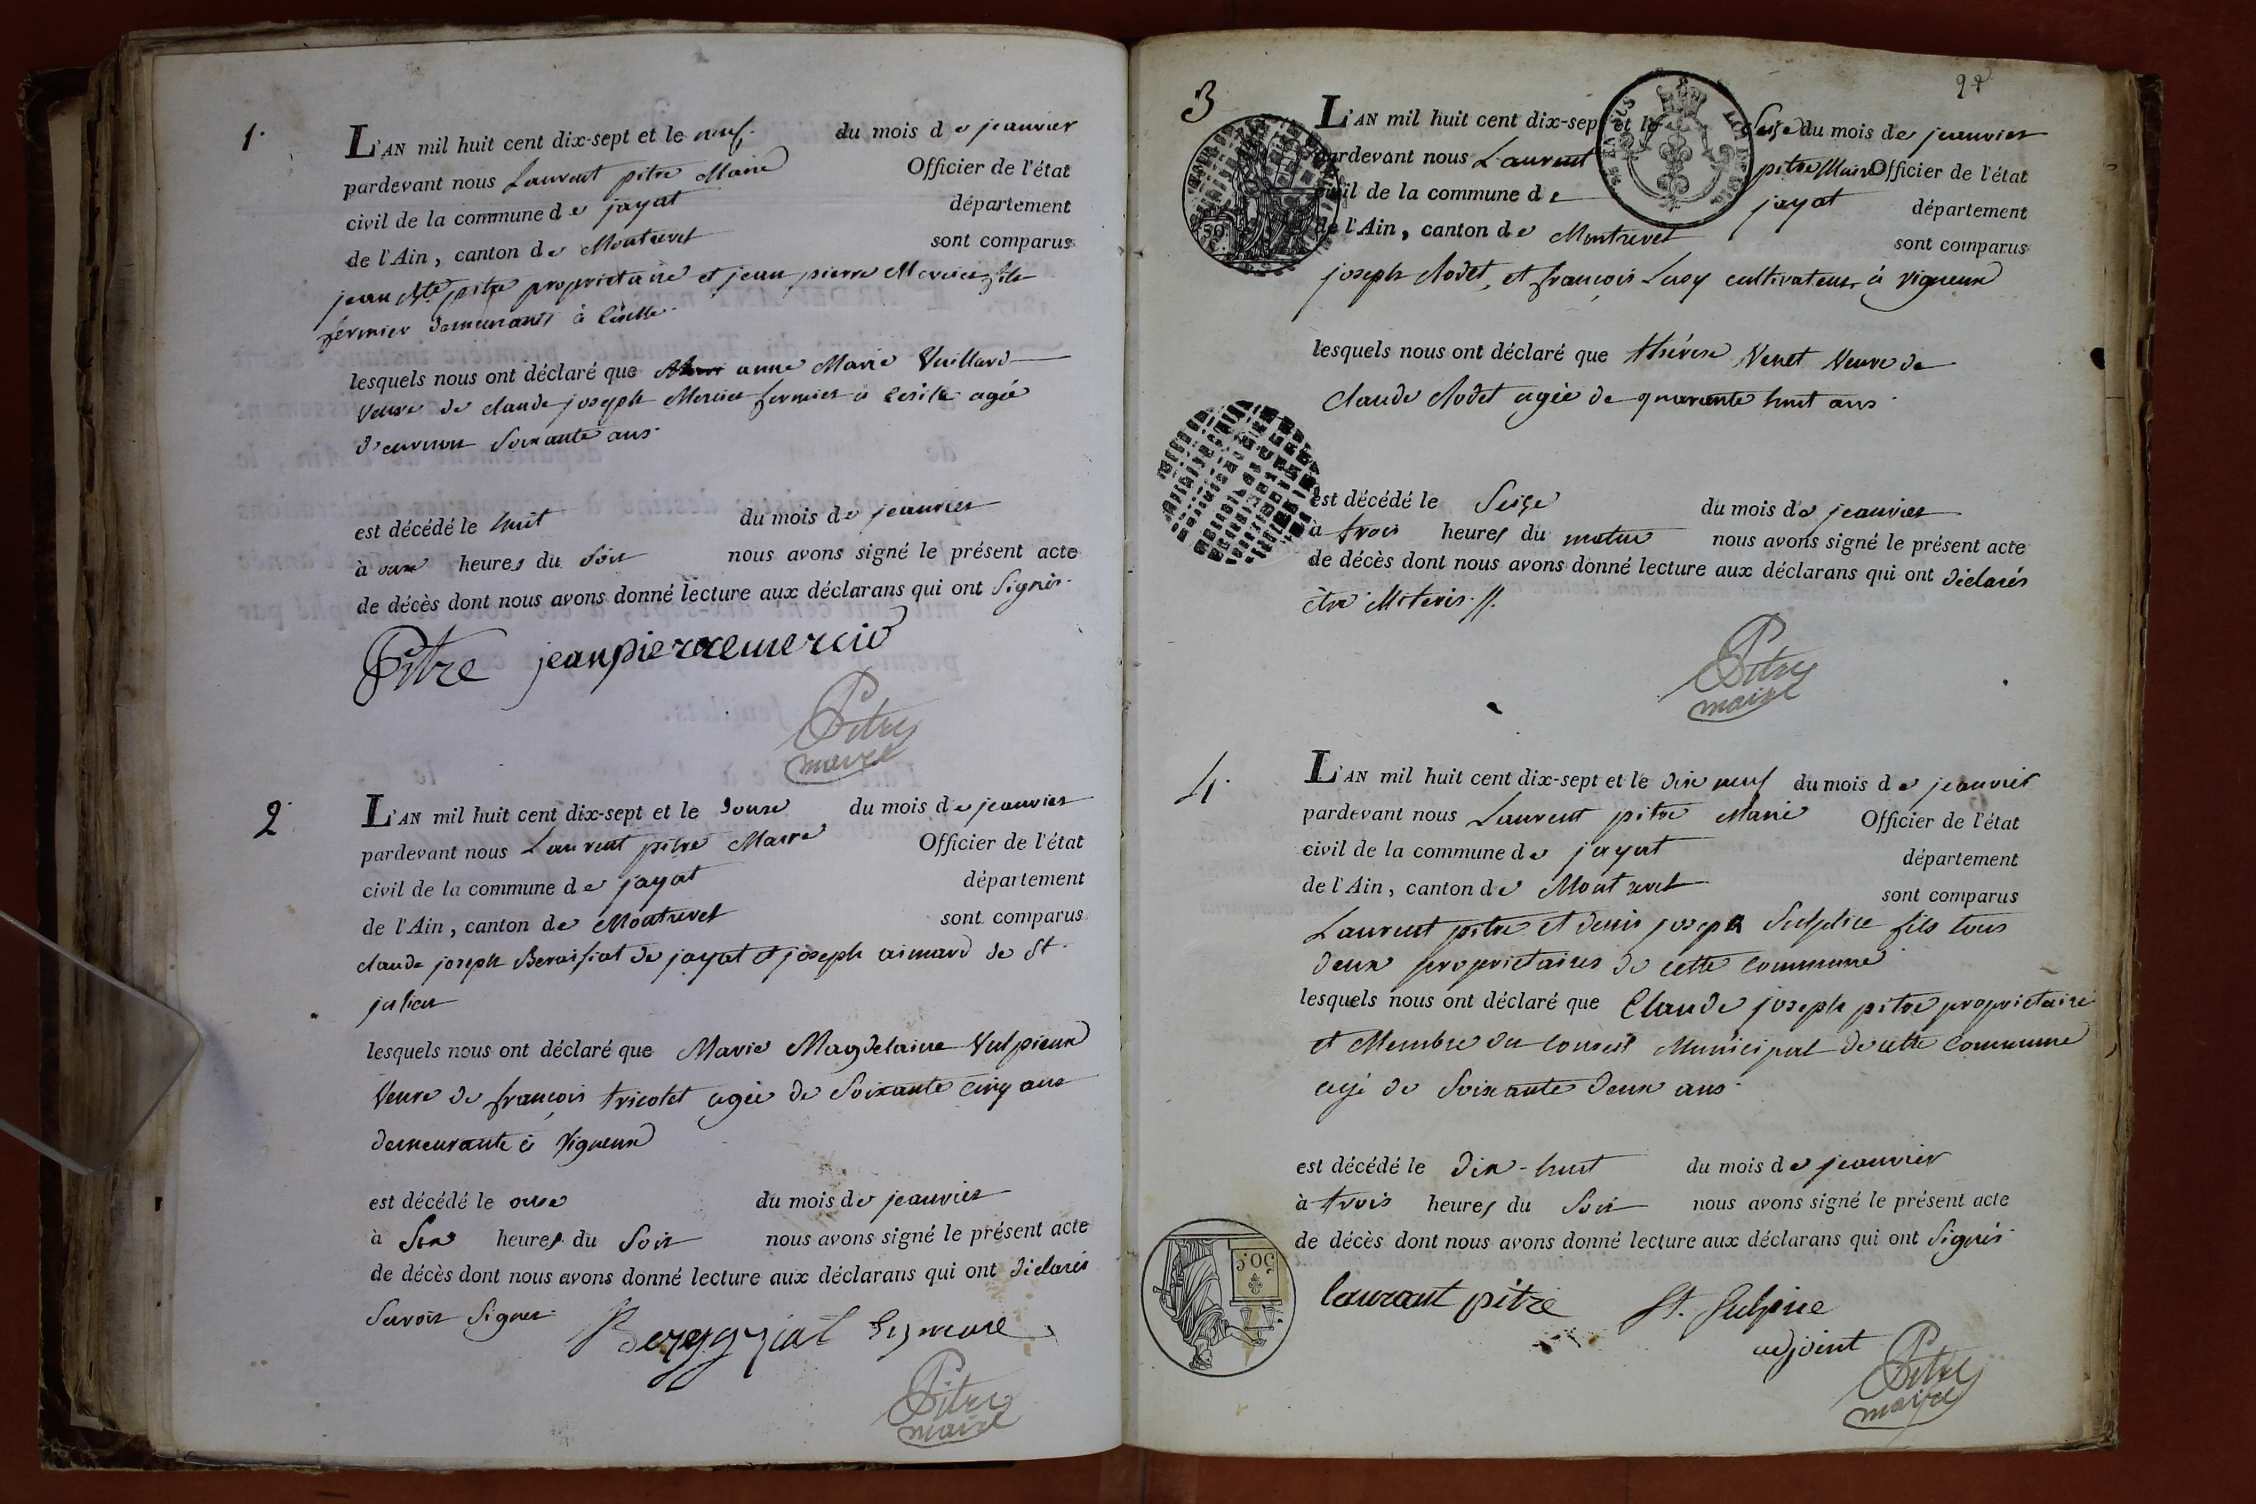 1.
L'AN mil huit cent dix-sept et le neuf. du mois de jeanvier
pardevant nous Laurent pitre Maire Officier de l'état
civil de la commune de jayat département
de l'Ain, canton de Montrevel sont comparus
jean Bte pitre proprietaire et jean pierre Mercier fils
fermier demeurants à
lesquels nous ont déclaré que anne Marie Vuillard
Veuve de claude joseph Mercier fermier à agée
d'environ Soixante ans.
est décédé le huit du mois de jeanvier
à onze heures du Soir nous avons signé le présent acte
de décès dont nous avons donné lecture aux déclarans qui ont Signés.
Pitre jeanpierremercié
Pitre
maire
2.
L'AN mil huit cent dix-sept et le Douze du mois de jeanvier
pardevant nous Laurent pitre Maire Officier de l'état
civil de la commune de jayat département
de l'Ain, canton de Montrevel sont comparus
claude joseph de jayat et joseph aimard de St
julien
lesquels nous ont déclaré que Marie Magdelaine Vulpieux
Veuve de françois tricotet agée de Soixante cinq ans
demeurante à Vigneux
est décédé le onze du mois de jeanvier
à Six heures du Soir nous avons signé le présent acte
de décès dont nous avons donné lecture aux déclarans qui ont déclarés
Savoir Signer.
Pitre
maire
3
94
L'AN mil huit cent dix-sept et le Seize du mois de jeanvier
pardevant nous Laurent pitre Maire Officier de l'état
civil de la commune de jayat département
de l'Ain, canton de Montrevel sont comparus
joseph clodet, et françois Lusy cultivateurs à vigneux
lesquels nous ont déclaré que thérèse Venet Veuve de
claude clodet agée de quarante huit ans.
est décédé le Seize du mois de jeanvier
à trois heures du matin nous avons signé le présent acte
de décès dont nous avons donné lecture aux déclarans qui ont déclarés
être illiterés. //.
Pitre
maire
4.
L'AN mil huit cent dix-sept et le dix neuf du mois de jeanvier
pardevant nous Laurent pitre Maire Officier de l'état
civil de la commune de jayat département
de l'Ain, canton de Montrevel sont comparus
Laurent pitre et denis joseph Sulpice fils tous
deux proprietaires de cette commune
lesquels nous ont déclaré que Claude joseph pitre proprietaire
et Membre du Conseil Municipal de cette Commune
agé de Soixante deux ans.
est décédé le dix-huit du mois de jeanvier
à trois heures du Soir nous avons signé le présent acte
de décès dont nous avons donné lecture aux déclarans qui ont Signés.
50c
laurant pitre St. Sulpice
adjoint
Pitre
maire